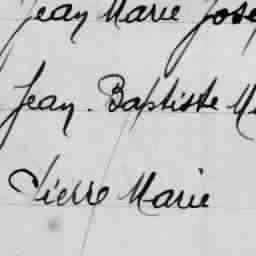 Jean Marie
Jean. Baptiste
Pierre Marie